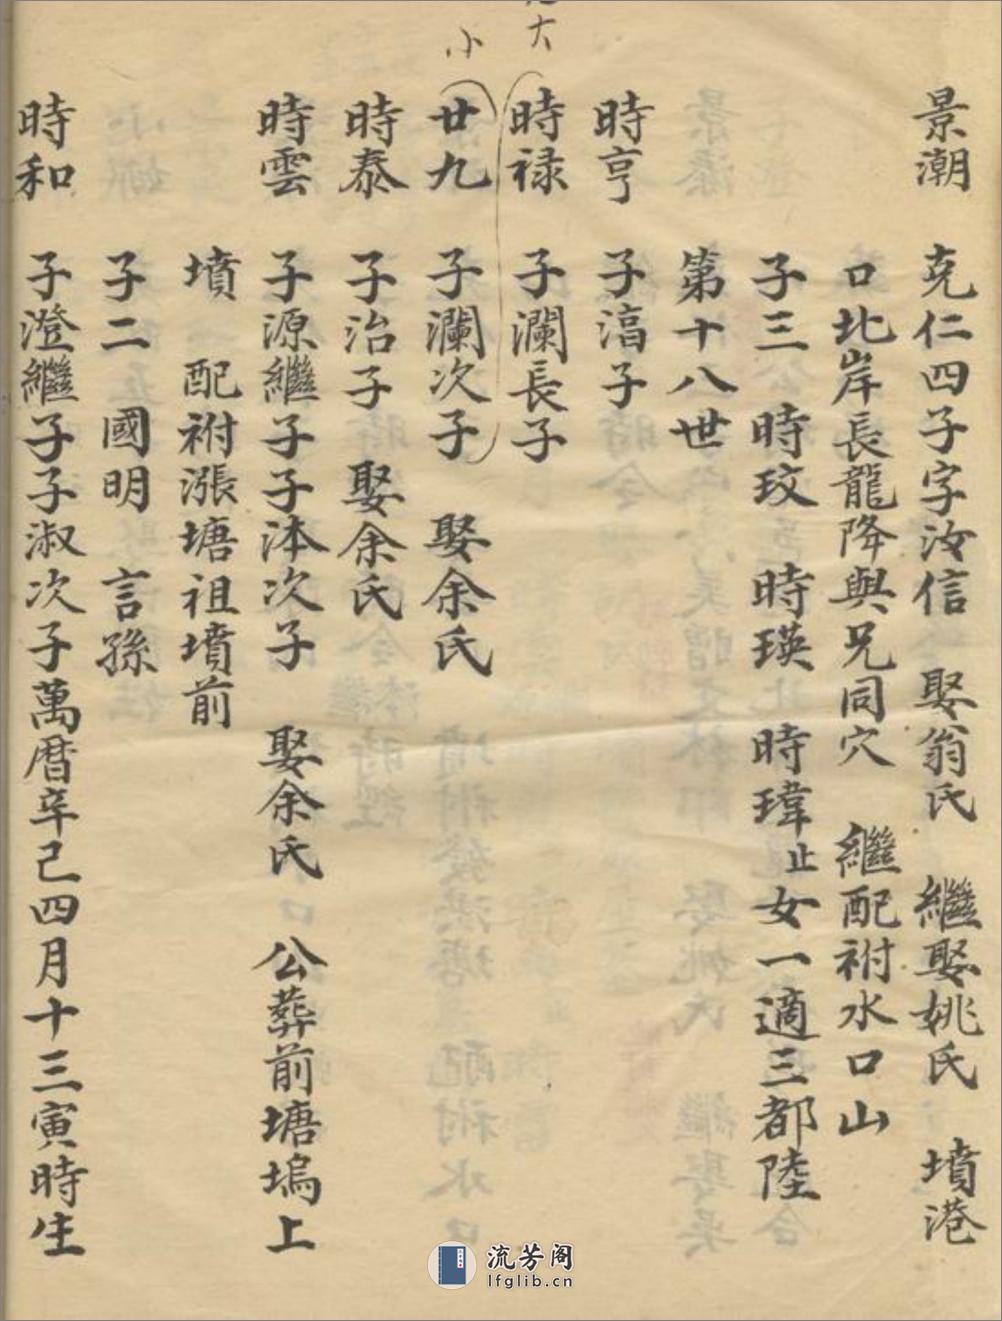 景潮 克仁四子字汝信 娶翁氏 繼娶姚氏 墳港
口北岸長龍降與兄同穴 繼配祔水口山
子三 時玟 時瑛 時瑋止女一適三都陸
第十八世
時亨 子濇子
大
時禄 子瀾長子
小
廿九 子瀾次子 娶余氏
時泰 子治子 娶余氏
時雲 子源繼子子沐次子 娶余氏 公葬前塘塢上
墳 配祔漲塘祖墳前
子二 國明 言孫
時和 子澄繼子子淑次子萬曆辛巳四月十三寅時生
流芳阁
lfglib.cn